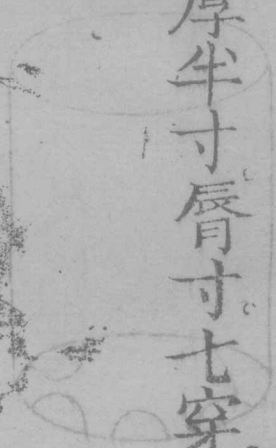 厚半寸脣寸七穿